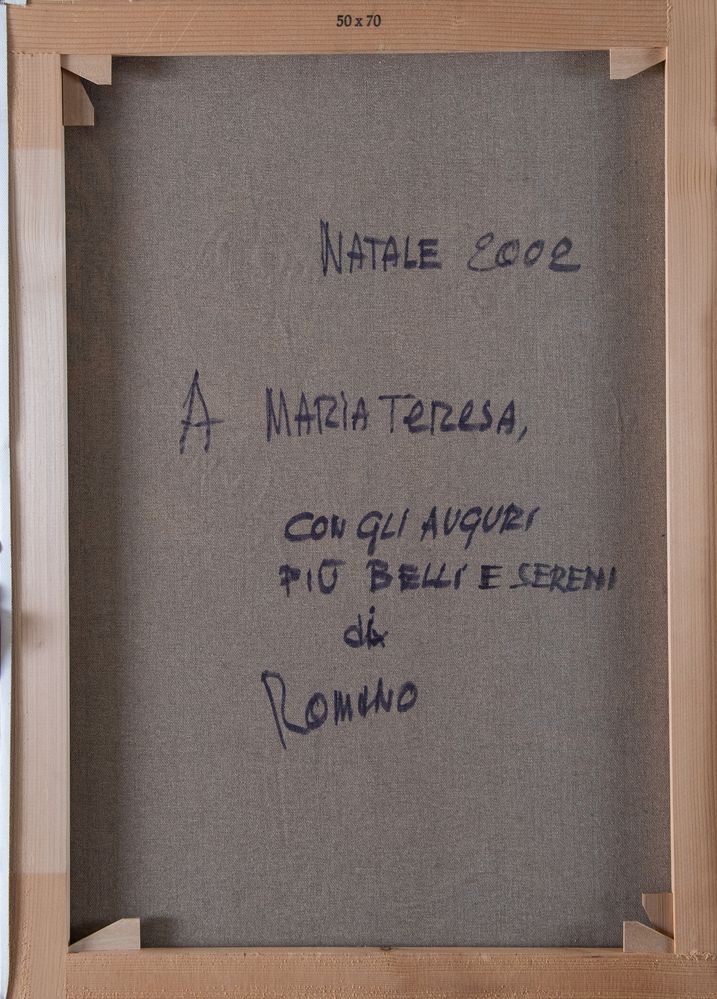 50 x 70
NATALE 2002
A MARIA TERESA,
CON GLI AUGURI
PIÙ BELLI E SERENI
di
ROMANO